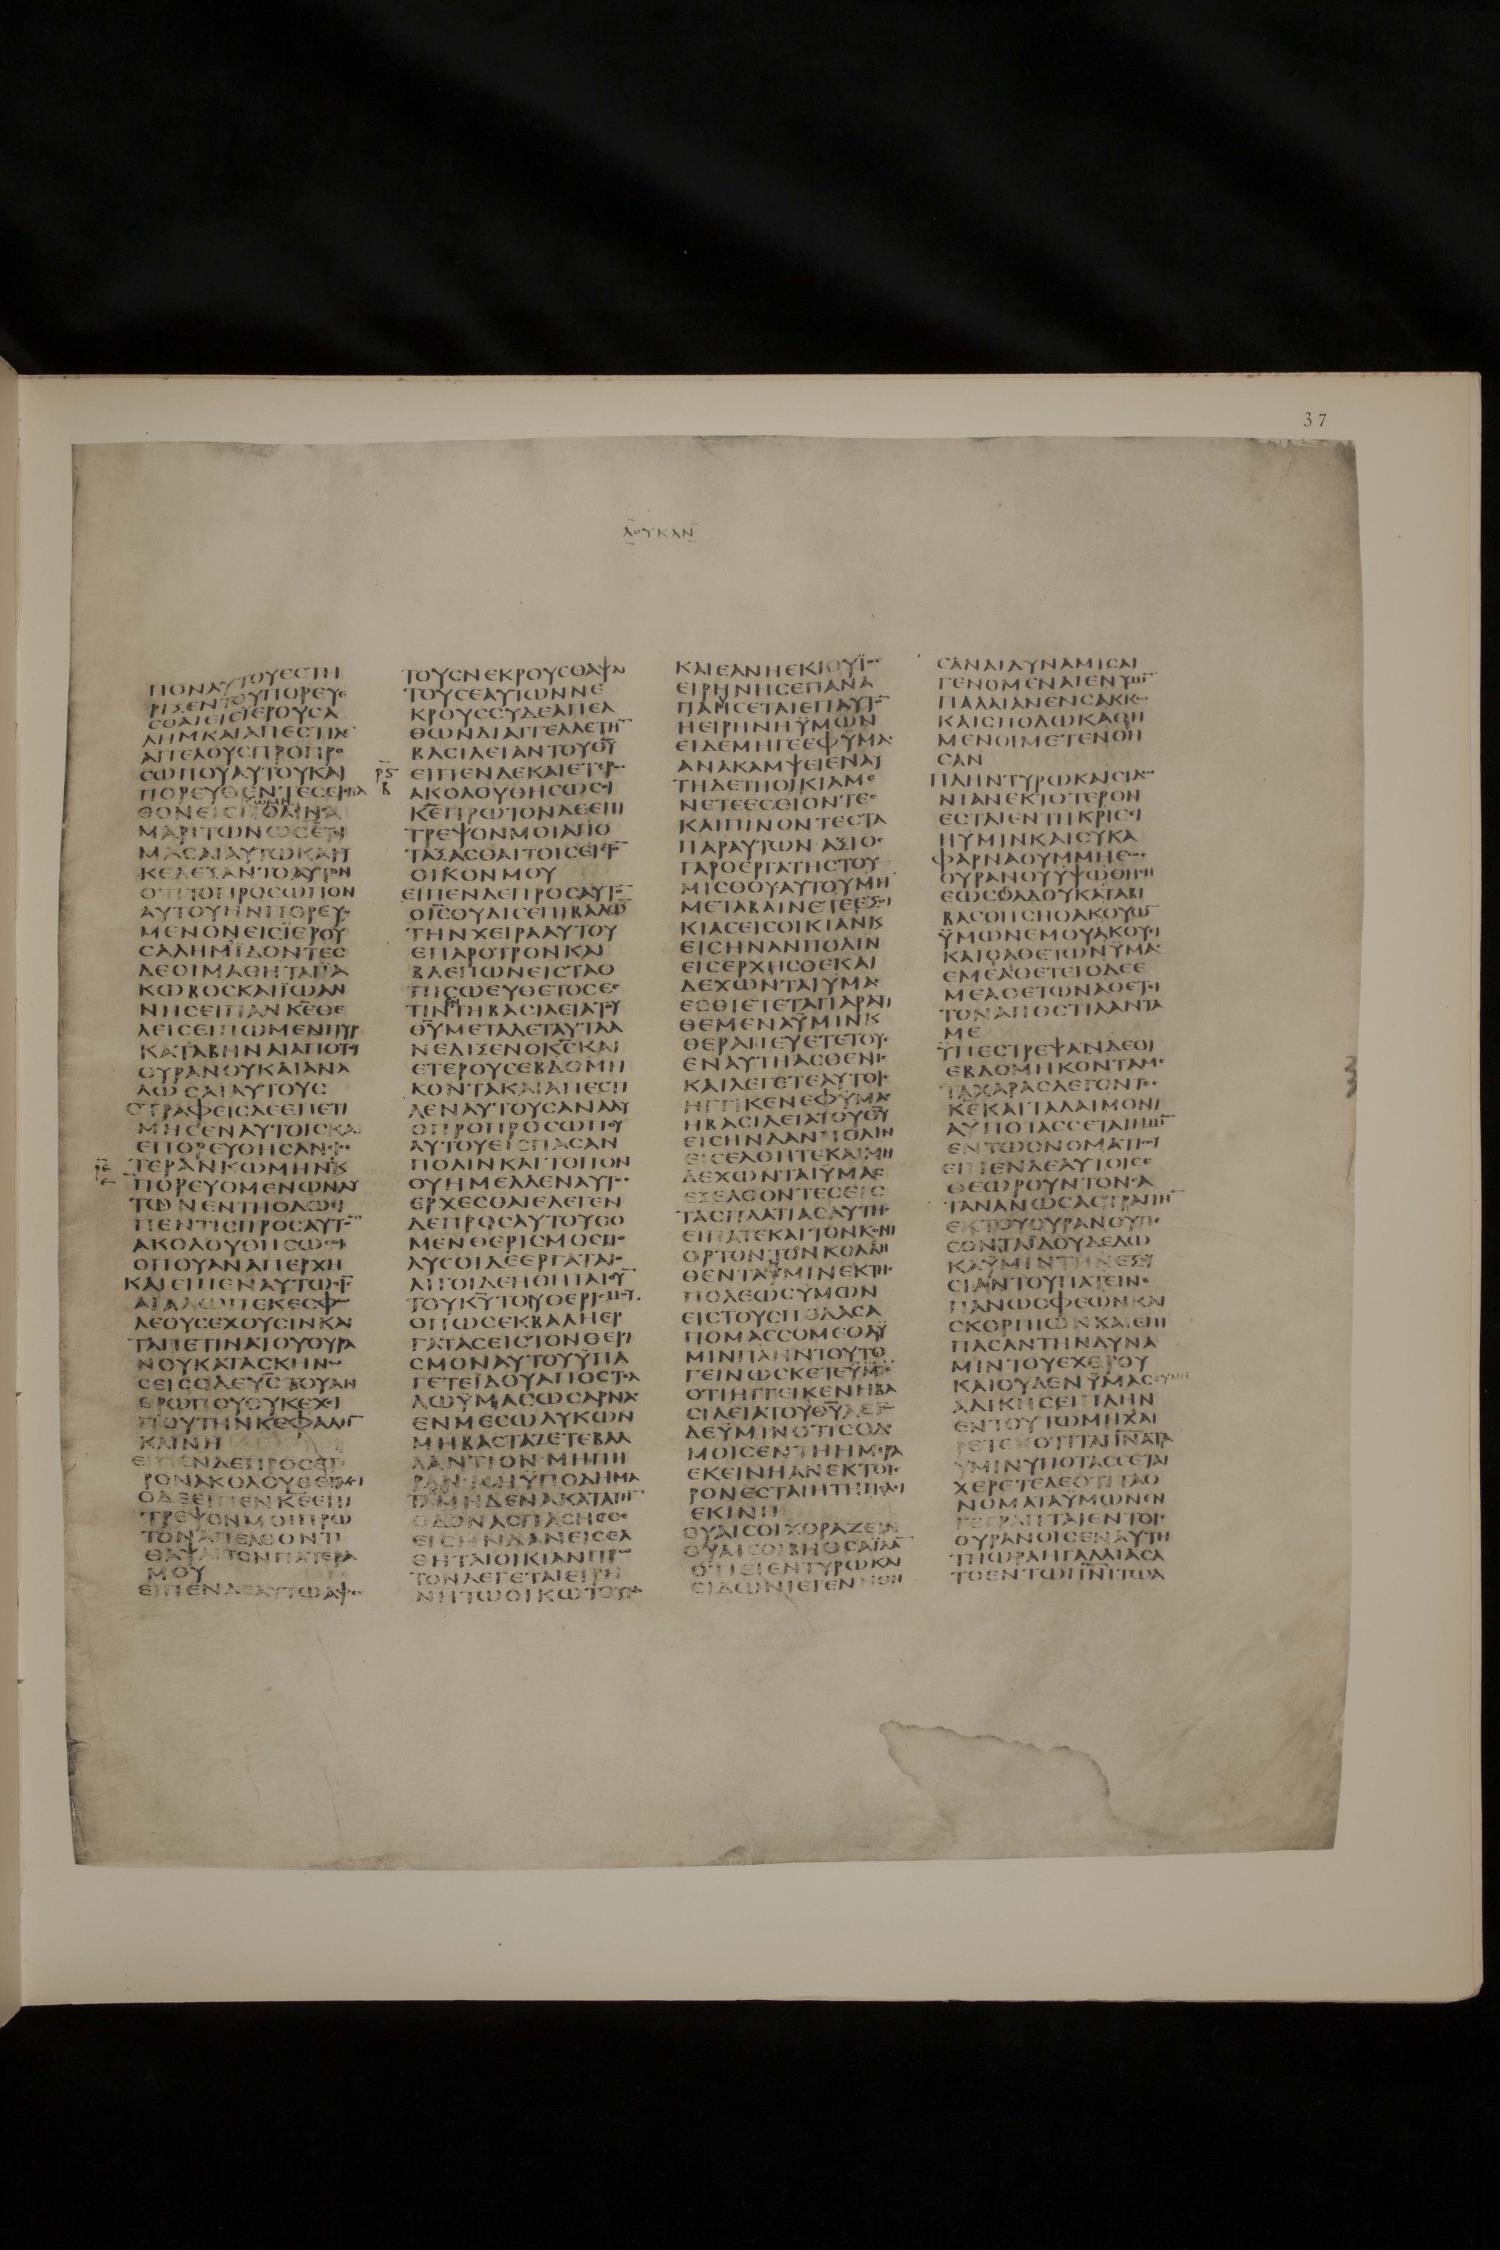 37
ΛΟΥΚΑΝ
ΠΟΝΑΥΤΟΥΕϹΤΗ
ΡΙϹΕΝΤΟΥΠΟΡΕΥΕ
ϹΘΑΙΕΙϹΪΕΡΟΥϹΑ
ΛΗΜΚΑΙΑΠΕϹΤΙΛΕ
ΑΓΓΕΛΟΥϹΠΡΟΠΡΟ
ϹΩΠΟΥΑΥΤΟΥΚΑΙ
ΠΟΡΕΥΘΕΝΤΕϹΕΙϹΗΛ
ΜΑΡΙΤΩΝΩϹΕΤΟΙ
ΜΑϹΑΙΑΥΤΩΚΑΙΟΥ
ΚΕΔΕΞΑΝΤΟΑΥΤΟΝ
ΟΤΙΤΟΠΡΟϹΩΠΟΝ
ΑΥΤΟΥΗΝΠΟΡΕΥΟ
ΜΕΝΟΝΕΙϹΪΕΡΟΥ
ϹΑΛΗΜΪΔΟΝΤΕϹ
ΔΕΟΙΜΑΘΗΤΑΙΪΑ
ΚΩΒΟϹΚΑΙΪΩΑΝ
ΝΗϹΕΙΠΑΝΚ̅Ε̅ΘΕ
ΛΕΙϹΕΙΠΩΜΕΝΠΥΡ
ΚΑΤΑΒΗΝΑΙΑΠΟΤΟΥ
ΟΥΡΑΝΟΥΚΑΙΑΝΑ
ΛΩϹΑΙΑΥΤΟΥϹ
ϹΤΡΑΦΕΙϹΔΕΕΠΕΤΙ
ΜΗϹΕΝΑΥΤΟΙϹΚΑΙ
ΕΠΟΡΕΥΘΗϹΑΝΕΙϹΕ
ΤΕΡΑΝΚΩΜΗΝΚΑΙ
ΠΟΡΕΥΟΜΕΝΩΝΑΥ
ΤΩΝΕΝΤΗΟΔΩΕΙ
ΠΕΝΤΙϹΠΡΟϹΑΥΤΟ̅
ΑΚΟΛΟΥΘΗϹΩϹΟΙ
ΟΠΟΥΑΝΑΠΕΡΧΗ
ΚΑΙΕΙΠΕΝΑΥΤΩΟΙ̅Ϲ̅
ΑΙΑΛΩΠΕΚΕϹΦΩ
ΛΕΟΥϹΕΧΟΥϹΙΝΚΑΙ
ΤΑΠΕΤΙΝΑΤΟΥΟΥΡΑ
ΝΟΥΚΑΤΑϹΚΗΝΩ
ϹΕΙϹΟΔΕΥ̅Ϲ̅ΤΟΥΑΝ
ΘΡΩΠΟΥΟΥΚΕΧΕΙ
ΠΟΥΤΗΝΚΕΦΑΛΗ̅
ΚΛΙΝΗ
ΕΙΠΕΝΔΕΠΡΟϹΕΤΕ
ΡΟΝΑΚΟΛΟΥΘΕΙΜΟΙ
ΟΔΕΕΙΠΕΝΚ̅Ε̅ΕΠΙ
ΤΡΕΨΟΝΜΟΙΠΡΩ
ΤΟΝΑΠΕΛΘΟΝΤΙ
ΘΑΨΑΙΤΟΝΠΑΤΕΡΑ
ΜΟΥ
ΕΙΠΕΝΔΕΑΥΤΩΑΦΕϹ
ΤΟΥϹΝΕΚΡΟΥϹΘΑΨΑΙ
ΤΟΥϹΕΑΥΤΩΝΝΕ
ΚΡΟΥϹϹΥΔΕΑΠΕΛ
ΘΩΝΔΙΑΓΓΕΛΛΕΤΗ̅
ΒΑϹΙΛΕΙΑΝΤΟΥΘ̅Υ̅
ΕΙΠΕΝΔΕΚΑΙΕΤΕΡΟϹ
ΑΚΟΛΟΥΘΗϹΩϹΟΙ
Κ̅Ε̅ΠΡΩΤΟΝΔΕΕΠΙ
ΤΡΕΨΟΝΜΟΙΑΠΟ
ΤΑΞΑϹΘΑΙΤΟΙϹΕΙϹΤΟ̅
ΟΙΚΟΝΜΟΥ
ΕΙΠΕΝΔΕΠΡΟϹΑΥΤΟ̅
ΟΙ̅Ϲ̅ΟΥΔΙϹΕΠΙΒΑΛΩ̅
ΤΗΝΧΕΙΡΑΑΥΤΟΥ
ΕΠΑΡΟΤΡΟΝΚΑΙ
ΒΛΕΠΩΝΕΙϹΤΑΟ
ΠΙϹΩΕΥΘΕΤΟϹΕϹ
ΤΙΝΤΗΒΑϹΙΛΕΙΑΤΟΥ
Θ̅Υ̅ΜΕΤΑΔΕΤΑΥΤΑΑ
ΝΕΔΙΞΕΝΟΚ̅Ϲ̅ΚΑΙ
ΕΤΕΡΟΥϹΕΒΔΟΜΗ
ΚΟΝΤΑΚΑΙΑΠΕϹΤΙ
ΛΕΝΑΥΤΟΥϹΑΝΑΔΥ
ΟΠΡΟΠΡΟϹΩΠΟΥ
ΑΥΤΟΥΕΙϹΠΑϹΑΝ
ΠΟΛΙΝΚΑΙΤΟΠΟΝ
ΟΥΗΜΕΛΛΕΝΑΥΤΟϹ
ΕΡΧΕϹΘΑΙΕΛΕΓΕΝ
ΔΕΠΡΟϹΑΥΤΟΥϹΟ
ΜΕΝΘΕΡΙϹΜΟϹΠΟ
ΛΥϹΟΙΔΕΕΡΓΑΤΑΙΟ
ΛΙΓΟΙΔΕΗΘΗΤΑΙΟΥ̅
ΤΟΥΚ̅Υ̅ΤΟΥΘΕΡΙϹΜΟΥ
ΟΠΩϹΕΚΒΑΛΗΕΡ
ΓΑΤΑϹΕΙϹΤΟΝΘΕΡΙ
ϹΜΟΝΑΥΤΟΥΫΠΑ
ΓΕΤΕΪΔΟΥΑΠΟϹΤΕΛ
ΛΩΫΜΑϹΩϹΑΡΝΑϹ
ΕΝΜΕϹΩΛΥΚΩΝ
ΜΗΒΑϹΤΑΖΕΤΕΒΑΛ
ΛΑΝΤΙΟΝΜΗΠΗ
ΡΑΝΜΗΫΠΟΔΗΜΑ
ΤΑΜΗΔΕΝΑΚΑΤΑΤΗ̅
ΟΔΟΝΑϹΠΑϹΗϹΘΕ
ΕΙϹΗΝΔΑΝΕΙϹΕΛ
ΘΗΤΑΙΟΙΚΙΑΝΠΡΩ
ΤΟΝΛΕΓΕΤΑΙΕΙΡΗ
ΝΗΤΩΟΙΚΩΤΟΥΤΩ
ΚΑΙΕΑΝΗΕΚΙΟΥΪΟϹ
ΕΙΡΗΝΗϹΕΠΑΝΑ
ΠΑΗϹΕΤΑΙΕΠΑΥΤΟ̅
ΗΕΙΡΗΝΗΫΜΩΝ
ΕΙΔΕΜΗΓΕΕΦΫΜΑϹ
ΑΝΑΚΑΜΨΕΙΕΝΑΥ
ΤΗΔΕΤΗΟΙΚΙΑΜΕ
ΝΕΤΕΕϹΘΙΟΝΤΕϹ
ΚΑΙΠΙΝΟΝΤΕϹΤΑ
ΠΑΡΑΥΤΩΝΑΞΙΟϹ
ΓΑΡΟΕΡΓΑΤΗϹΤΟΥ
ΜΙϹΘΟΥΑΥΤΟΥΜΗ
ΜΕΤΑΒΑΙΝΕΤΕΕΞΟΙ
ΚΙΑϹΕΙϹΟΙΚΙΑΝΚΑΙ
ΕΙϹΗΝΑΝΠΟΛΙΝ
ΕΙϹΕΡΧΗϹΘΕΚΑΙ
ΔΕΧΩΝΤΑΙΥΜΑϹ
ΕϹΘΙΕΤΕΤΑΠΑΡΑΤΙ
ΘΕΜΕΝΑΫΜΙΝΚΑΙ
ΘΕΡΑΠΕΥΕΤΕΤΟΥϹ
ΕΝΑΥΤΗΑϹΘΕΝΙϹ
ΚΑΙΛΕΓΕΤΕΑΥΤΟΙϹ
ΗΓΓΙΚΕΝΕΦΫΜΑϹ
ΗΒΑϹΙΛΕΙΑΤΟΥΘ̅Υ̅
ΕΙϹΗΝΔΑΝΠΟΛΙΝ
ΕΙϹΕΛΘΗΤΕΚΑΙΜΗ
ΔΕΧΩΝΤΑΙΫΜΑϹ
ΕΞΕΛΘΟΝΤΕϹΕΙϹ
ΤΑϹΠΛΑΤΙΑϹΑΥΤΗϹ
ΕΙΠΑΤΕΚΑΙΤΟΝΚΟΝΙ
ΟΡΤΟΝΤΟΝΚΟΛΛΗ
ΘΕΝΤΑΫΜΙΝΕΚΤΗϹ
ΠΟΛΕΩϹΥΜΩΝ
ΕΙϹΤΟΥϹΠΟΔΑϹΑ
ΠΟΜΑϹϹΟΜΕΘΑΫ
ΜΙΝΠΛΗΝΤΟΥΤΟ
ΓΕΙΝΩϹΚΕΤΕ
ΟΤΙΗΓΓΕΙΚΕΝΗΒΑ
ϹΙΛΕΙΑΤΟΥΘ̅Υ̅ΛΕΓΩ
ΔΕΫΜΙΝΟΤΙϹΟΔΟ
ΜΟΙϹΕΝΤΗΗΜΕΡΑ
ΕΚΕΙΝΗΑΝΕΚΤΟΤΕ
ΡΟΝΕϹΤΑΙΗΤΗΠΟΛΙ
ΕΚΙΝΗ
ΟΥΑΙϹΟΙΧΟΡΑΖΕΙΝ
ΟΥΑΙϹΟΙΒΗΘϹΑΪΔΑ̅
ΟΤΙΕΙΕΝΤΥΡΩΚΑΙ
ϹΙΔΩΝΙΕΓΕΝΗΘΗ
ϹΑΝΑΙΔΥΝΑΜΙϹΑΙ
ΓΕΝΟΜΕΝΑΙΕΝΥΜΙ̅
ΠΑΛΑΙΑΝΕΝϹΑΚΚΩ
ΚΑΙϹΠΟΔΩΚΑΘΗ
ΜΕΝΟΙΜΕΤΕΝΟΗ
ϹΑΝ
ΠΛΗΝΤΥΡΩΚΑΙϹΙΔΩ
ΝΙΑΝΕΚΤΟΤΕΡΟΝ
ΕϹΤΑΙΕΝΤΗΚΡΙϹΙ
ΗΫΜΙΝΚΑΙϹΥΚΑ
ΦΑΡΝΑΟΥΜΜΗΕΩϹ
ΟΥΡΑΝΟΥΫΨΩΘΗϹΗ
ΕΩϹΑΔΟΥΚΑΤΑΒΙ
ΒΑϹΘΗϹΗΟΑΚΟΥΩ̅
ΫΜΩΝΕΜΟΥΑΚΟΥΕΙ
ΚΑΙΟΑΘΕΤΩΝΫΜΑϹ
ΕΜΕΑΘΕΤΕΙΟΔΕΕ
ΜΕΑΘΕΤΩΝΑΘΕΤΕΙ
ΤΟΝΑΠΟϹΤΙΛΑΝΤΑ
ΜΕ
ΫΠΕϹΤΡΕΨΑΝΔΕΟΙ
ΕΒΔΟΜΗΚΟΝΤΑΜΕ
ΤΑΧΑΡΑϹΛΕΓΟΝΤΕϹ
Κ̅Ε̅ΚΑΙΤΑΔΑΙΜΟΝΙ
ΑΫΠΟΤΑϹϹΕΤΑΙΗΜΙ̅
ΕΝΤΩΟΝΟΜΑΤΙϹΟΥ
ΕΙΠΕΝΔΕΑΥΤΟΙϹΕ
ΘΕΩΡΟΥΝΤΟΝϹΑ
ΤΑΝΑΝΩϹΑϹΤΡΑΠΗ̅
ΕΚΤΟΥΟΥΡΑΝΟΥΠΕ
ϹΟΝΤΑΪΔΟΥΔΕΔΩ
ΚΑΫΜΙΝΤΗΝΕΞΟΥ
ϹΙΑΝΤΟΥΠΑΤΕΙΝΕ
ΠΑΝΩΟΦΕΩΝΚΑΙ
ϹΚΟΡΠΙΩΝΚΑΙΕΠΙ
ΠΑϹΑΝΤΗΝΔΥΝΑ
ΜΙΝΤΟΥΕΧΘΡΟΥ
ΚΑΙΟΥΔΕΝΫΜΑϹΟΥΜΗ
ΑΔΙΚΗϹΕΙΠΛΗΝ
ΕΝΤΟΥΤΩΜΗΧΑΙ
ΡΕΤΕΟΤΙΤΑΠ̅Ν̅Α̅ΤΑ
ΥΜΙΝΥΠΟΤΑϹϹΕΤΑΙ
ΧΕΡΕΤΕΔΕΟΤΙΤΑΟ
ΝΟΜΑΤΑΫΜΩΝΕΝ
ΓΕΓΡΑΠΤΑΙΕΝΤΟΙϹ
ΟΥΡΑΝΟΙϹΕΝΑΥΤΗ
ΤΗΩΡΑΗΓΑΛΛΙΑϹΑ
ΤΟΕΝΤΩΠ̅Ν̅Ι̅ΤΩΑ